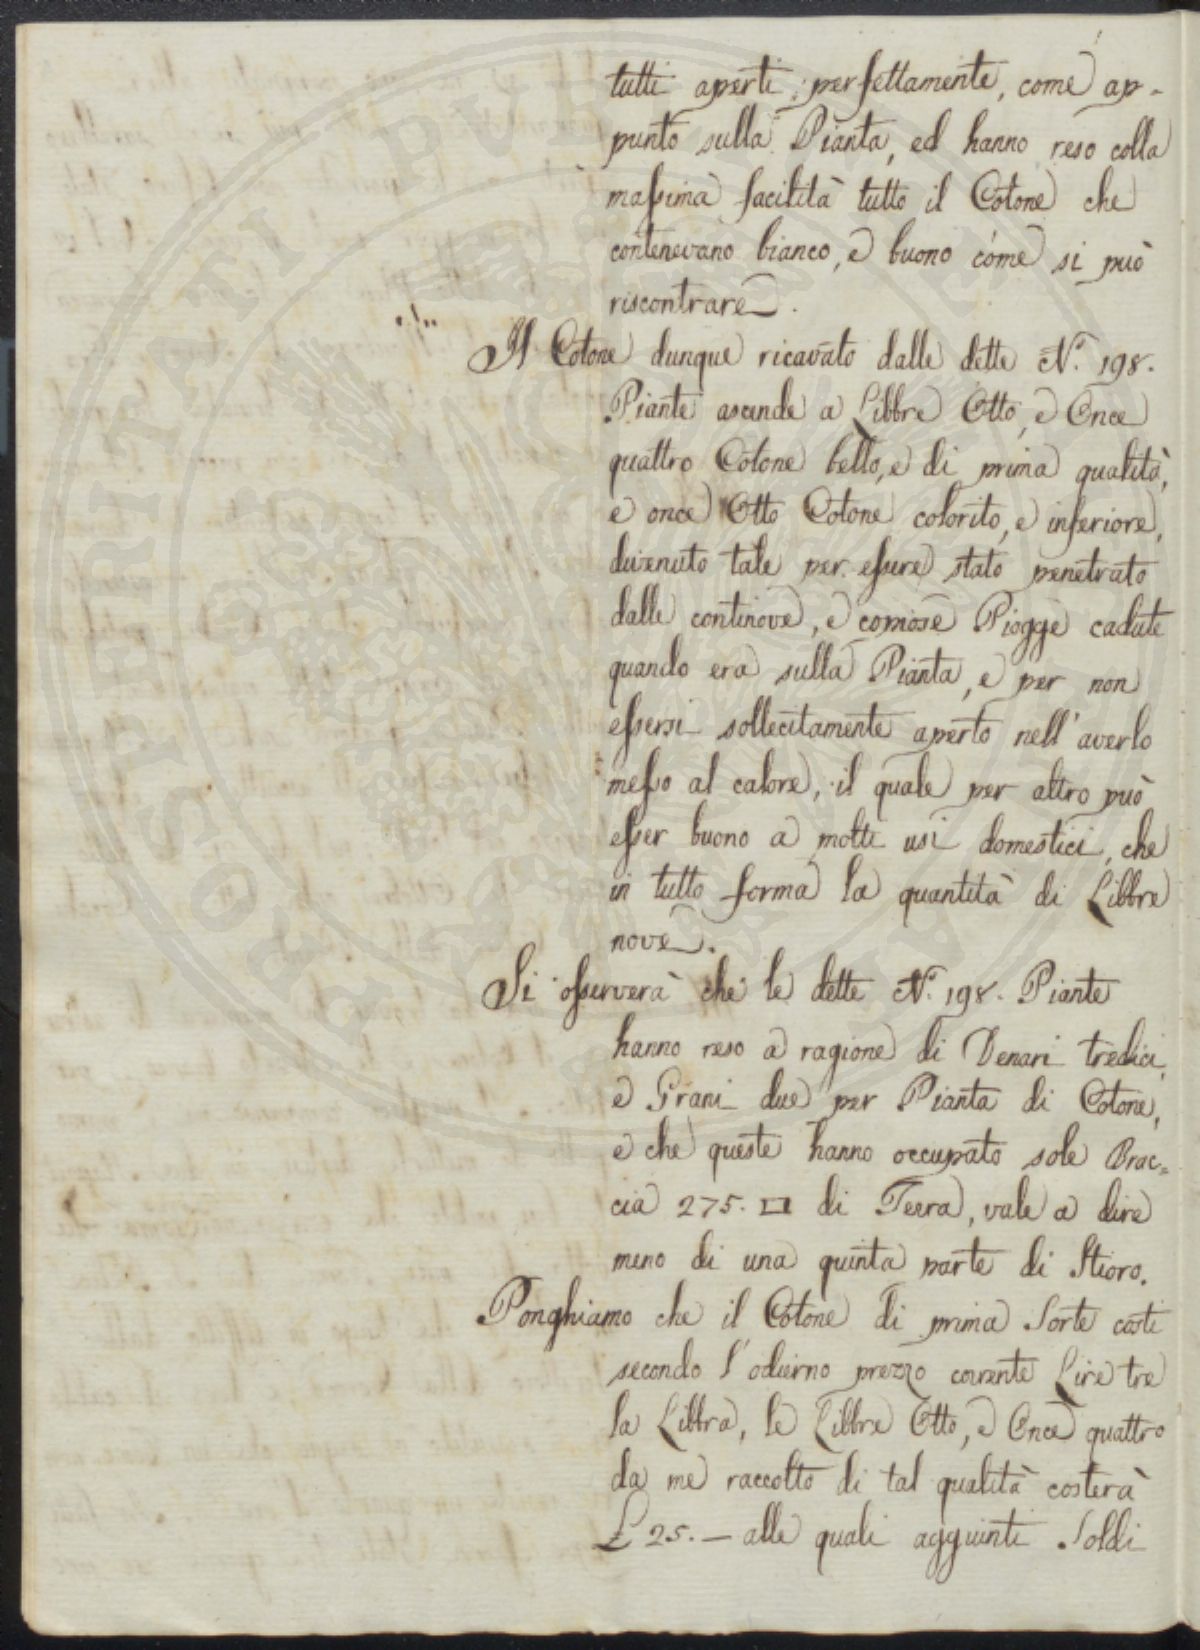 tutti aperti perfettamente, come ap-
punto sulla Pianta, ed hanno reso colla
massima facilità tutto il Cotone che
contenevano bianco, e buono come si può
riscontrare.
Il Cotone dunque ricavato dalle dette N.° 198.
Piante ascende a Libbre Otto, e Once
quattro Cotone bello, e di prima qualità,
e once Otto Cotone colorito, e inferiore,
divenuto tale per essere stato penetrato
dalle continove, e copiose Piogge cadute
quando era sulla Pianta, e per non
essersi sollecitamente aperto nell'averlo
messo al calore, il quale per altro può
esser buono a molti usi domestici, che
in tutto forma la quantità di Libbre
nove.
Si osserverà che le dette N.° 198. Piante
hanno reso a ragione di Denari tredici,
e Grani due per Pianta di Cotone,
e che queste hanno occupato sole Brac=
cia 275. □ di Terra, vale a dire
meno di una quinta parte di Stioro.
Ponghiamo che il Cotone di prima Sorte costi
secondo l'odierno prezzo corrente Lire tre
la Libbra, le Libbre Otto, e Once quattro
da me raccolto di tal qualità costerà
£ 25. — alle quali aggiunti Soldi
PROSPERITATI PUBLICAE